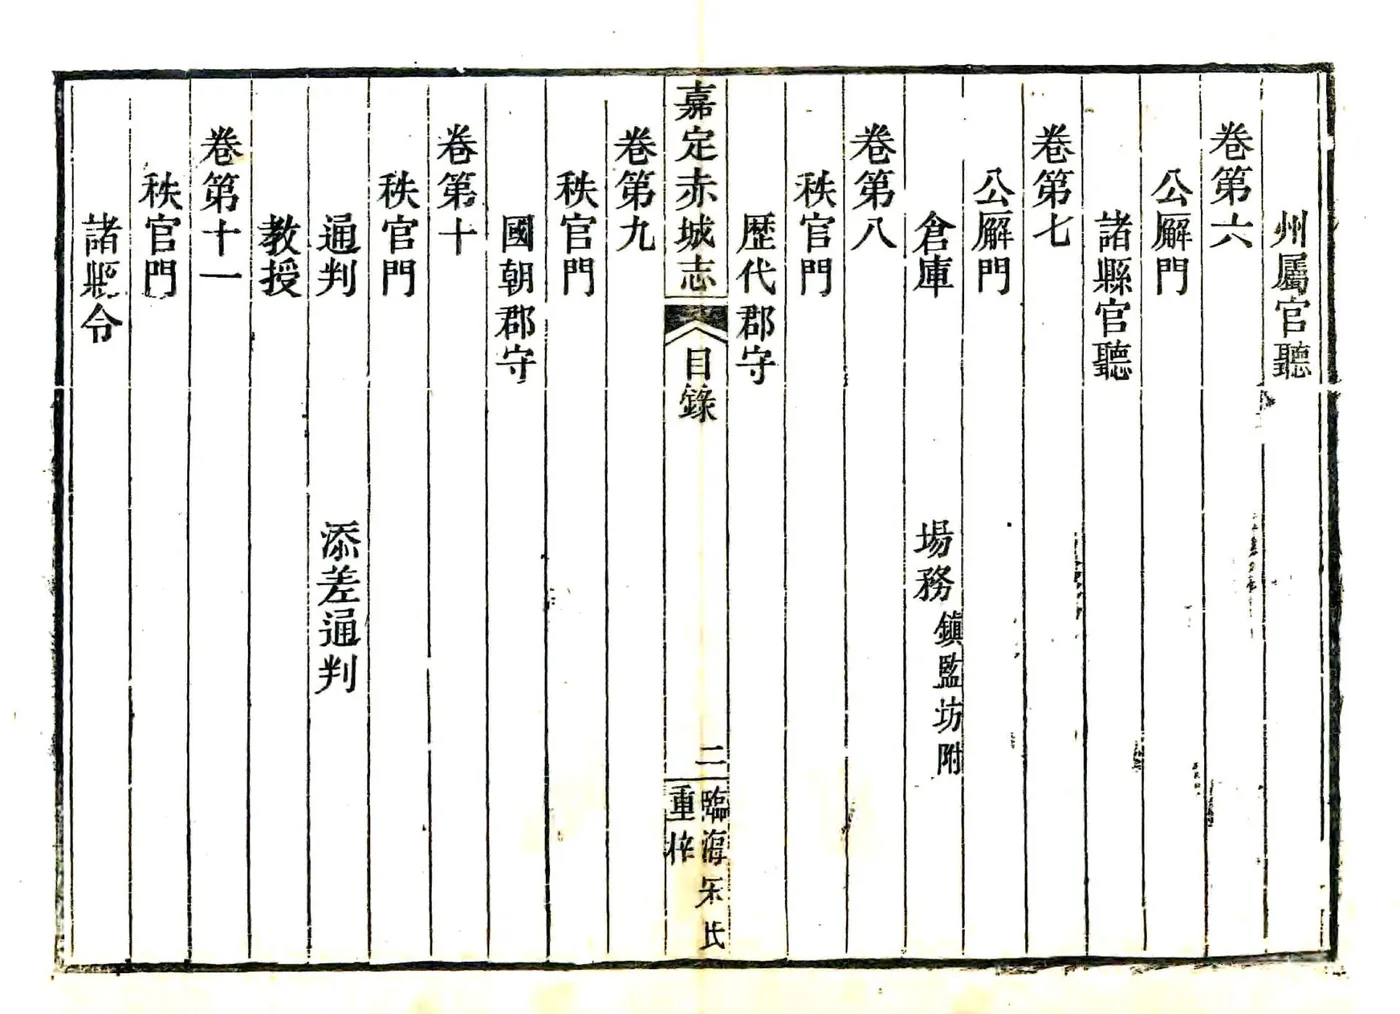 州屬官聽
卷第六
公廨門
諸縣官聽
卷第七
公廨門
倉庫 場務鎮監坊附
卷第八
秩官門
歴代郡守
嘉定赤城志 目錄 二 臨海宋氏重梓
卷第九
秩官門
國朝郡守
卷第十
秩官門
通判 添差通判
教授
卷第十一
秩官門
諸縣令